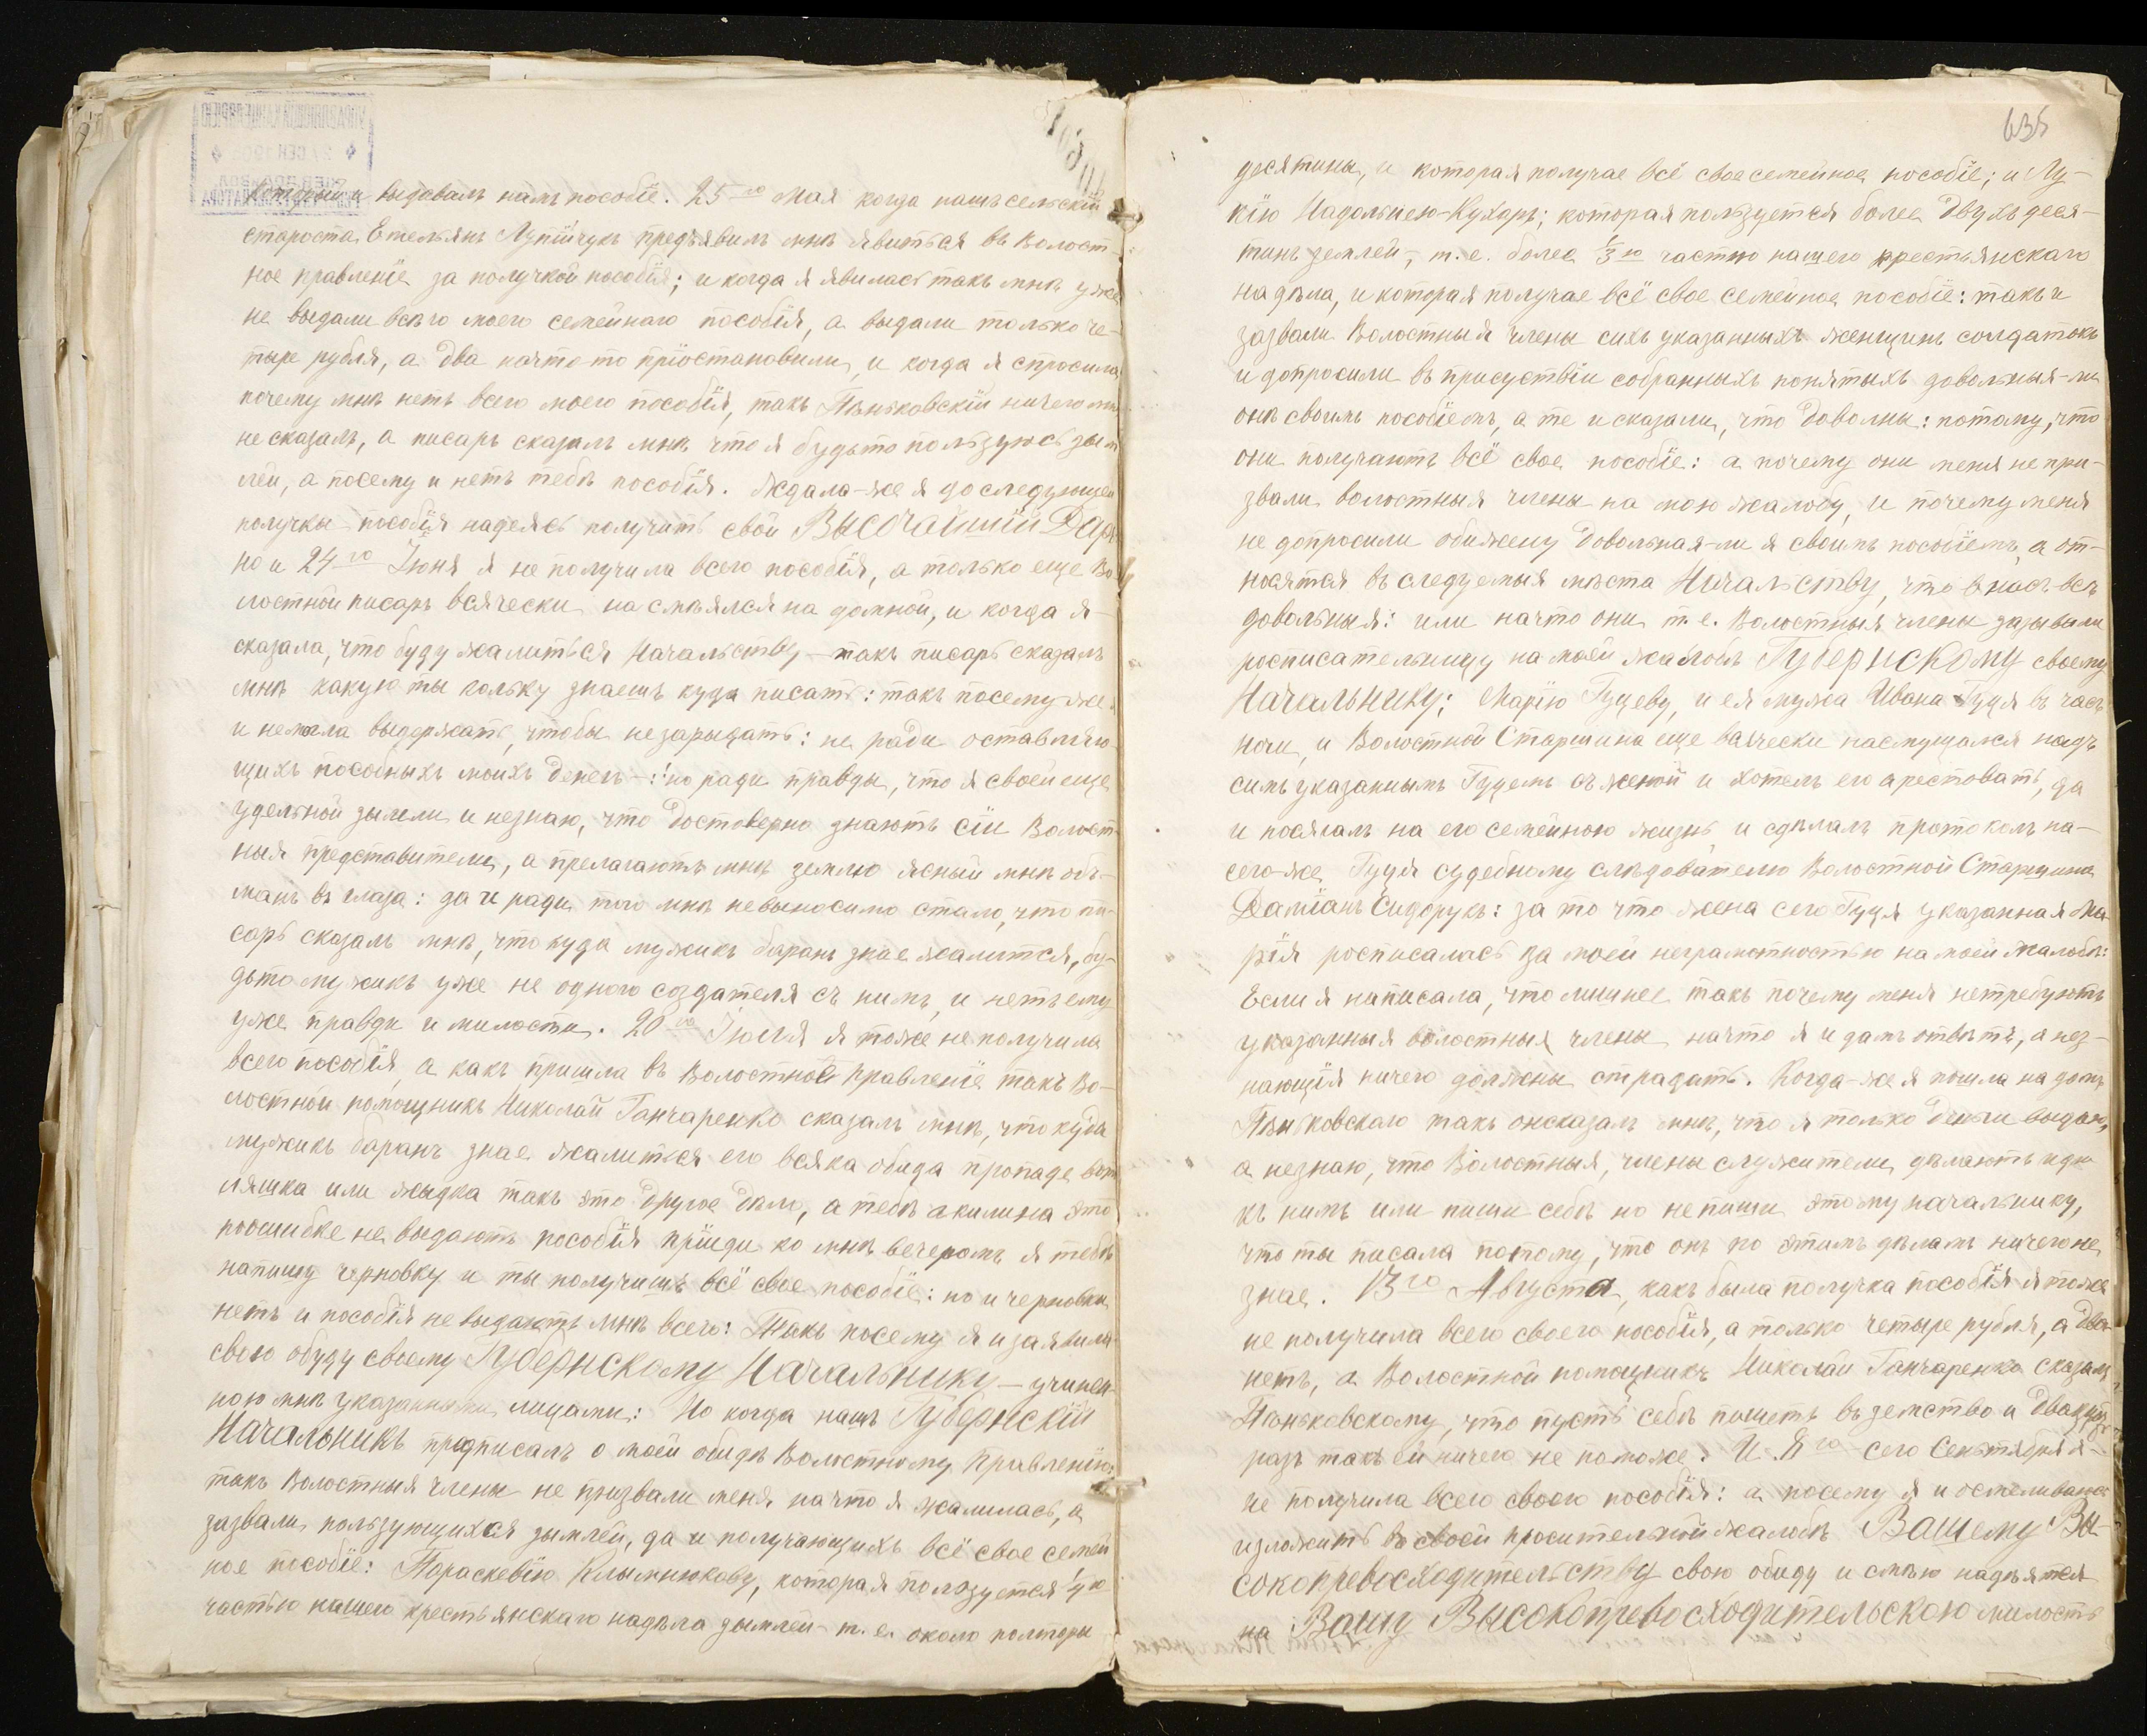 который и выдавалъ намъ пособіе. 25го Мая когда нашъ сельскій
староста Емельянъ Лупійчукъ предъявилъ мнѣ явиться въ Волост-
ное правленіе за получкой пособія; и когда я явилась такъ мнѣ уже
не выдали всѣго моего семейнаго пособія, а выдали только че-
тыре рубля, а два начто-то пріостановили, и когда я спросила
почему мнѣ нетъ всего моего пособія, такъ Пѣньковскій ничего мнѣ
не сказалъ, а писарь сказалъ мнѣ что я будьто пользуюсь зым-
лей, а посему и нетъ тебѣ пособія. Ждала-же я до следующей
получки пособія надеясь получить свой Высочайшій Даръ
но и 24го Іюня я не получила всего пособія, а только еще Во-
лостной писарь всячески насмѣялся надомной, и когда я-
сказала, что буду жалиться Начальству – такъ писарь сказалъ
мнѣ какую ты польку знаешъ куда писать: такъ посему же
и немогла выдержать, чтобы незарыдать: не ради оставляю-
щихъ пособныхъ моихъ денегъ-:! но ради правды, что я своей еще
удельной зымли и незнаю, что достоверно знаютъ сіи Волост-
ныя представители, а прелагаютъ мнѣ землю ясный мнѣ об-
манъ въ глаза: да и ради того мнѣ невыносимо стало, что пи-
сарь сказалъ мнѣ, что куда мужикъ баранъ знае жалится, бу-
дьто мужикъ уже не одного создателя съ нимъ, и нетъ ему
уже правди и милости. 20го Іюля я тоже не получила
всего пособія, а какъ пришла въ Волостное Правленіе такъ Во-
лостной помощникъ Николай Ганчаренко сказалъ мнѣ, что куда
мужикъ баранъ знае жалится его всяка обида пропаде вотъ
ляшка или жыдка такъ это другое дѣло, а тебѣ акилина это
поошибке не выдаютъ пособія прійди ко мнѣ вечеромъ я тебѣ
напишу черновку и ты получишъ всё свое пособіе: но и черновки
нетъ и пособія не выдаютъ мнѣ всего: Такъ посему я и заявила
свою обуду своему Губернскому Начальнику – учинен-
ною мнѣ указанными лицами: Но когда нашъ Губернскій
Начальникъ предписалъ о моей обидѣ Волостному Правленію:
такъ Волостныя члены не призвали меня начто я жалилась, а
зазвали пользующихся зымлей, да и получающихъ всё свое семей
ное пособіе: Параскевію Клымнюкову, которая ползуется 1/4ю
частью нашего крестьянскаго надѣла зымлей т. е. около полторы
635
десятины, и которая получае всё свое семейное пособіе; и Лу-
кію Надольнею-Кухаръ; которая пользуется более двухъ деся-
тинъ землей, т. е. более 1/3ю частю нашего крестьянскаго
надѣла, и которая получае всё свое семейное пособіе: такъ и
зазвали Волостныя члены сихъ указанныхъ женщинъ солдатокъ
и допросили въ присуствіи собранныхъ понятыхъ довольныя-ли
онѣ своимъ пособіемъ, а те и сказали, что доволны: потому, что
они получаютъ всё свое пособіе: а почему они меня не при-
звали волостныя члены на мою жалобу, и почему меня
не допросили обижену довольная-ли я своимъ пособіемъ, а от-
носятся въ следуемыя мѣста Начальству, что в насъ всѣ
довольныя: или начто они т. е. Волостныя члены зазывали
росписательницу на моей жалобѣ Губернскому своему
Начальнику; Марію Гуцеву, и ея мужа Ивана Гуця въ часъ
ночи, и Волостной Старшина еще всячески насмущался надъ
симъ указаннымъ Гуцемъ съ женой и хотелъ его арестовать, да
и посягалъ на его семейною жизнь, и сдѣлалъ протоколъ на-
сего-же Гуця судебному слѣдователю Волостной Старшина
Даміанъ Сидорукъ: за то что жена сего Гуця указанная Ма-
рія росписалась за моей неграмотностью на моей жалобѣ:
Если я написала, что лишнее такъ почему меня нетребуютъ
указанныя волостныя члены начто я и дамъ отвѣтъ, а нез-
нающія ничего должны страдать. Когда-же я пошла на домъ
Пѣньковскаго такъ онсказалъ мнѣ, что я только деньги выдаю,
а незнаю, что Волостныя, члены служители дѣлаютъ иди
къ нимъ или пиши себѣ но непиши этому начальнику,
что ты писала потому, что онъ по этимъ дѣламъ ничего не
знае. 13го Августа, какъ была получка пособія я тоже
не получила всего своего пособія, а только четыре рубля, а два
нетъ, а Волостной помощникъ Николай Ганчаренко сказалъ
Пѣньковскому, что пусть себѣ пишетъ въ земство и двацять
разъ такъ ей ничего не поможе. И 8го сего Сентября я-
не получила всего своего пособія: а посему я и осмеливаюсь
изложить во своей просительной жалобѣ Вашему Вы-
сокопревосходительству свою обиду и смѣю надѣятся
на Вашу Высокопревосходительскою милость